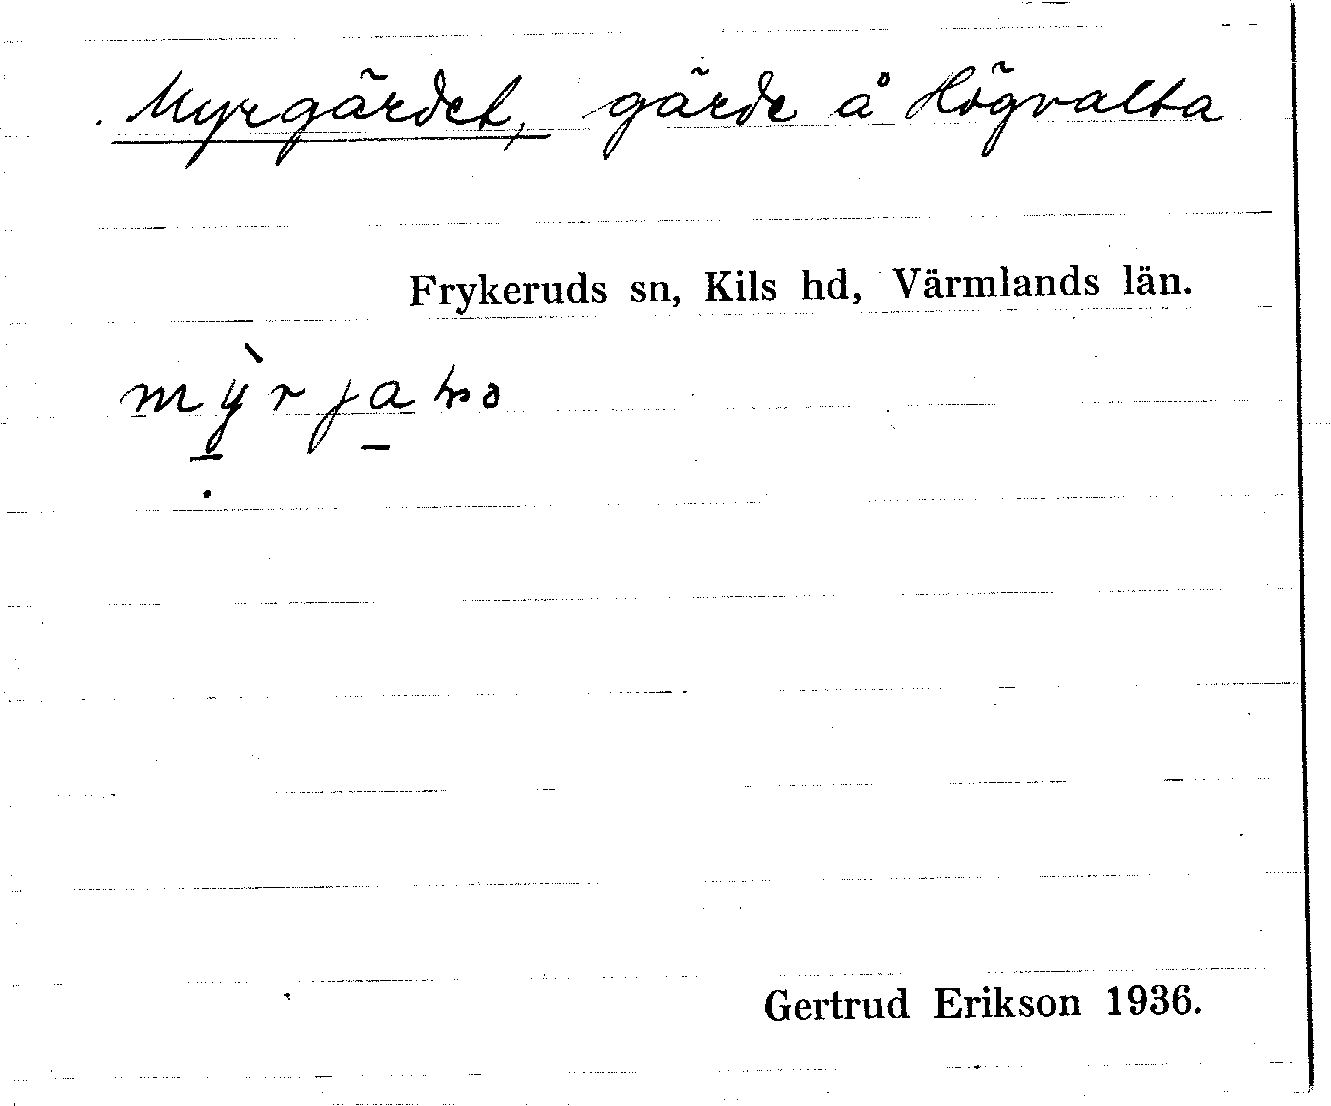 Myrgärdet, gärde å Högvalta
Frykeruds sn, Kils hd, Värmlands län.
Gertrud Erikson 1936.